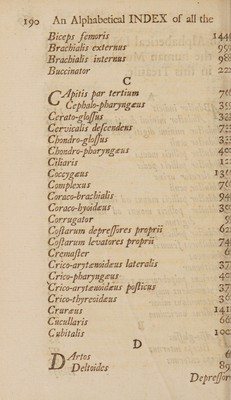 190 An Alphabetical INDEX of all the
Biceps femoris 144
Brachialis externus 99
Brachialis internus 98
Buccinator 22
C
CApitis par tertium 76
Cephalo-pharyngæus 39
Cerato-glossus 33
Cervicalis descendens 75
Chondro-glossus 33
Chondro-pharyngæus 40
Ciliaris 12
Coccygæus 136
Complexus 76
Coraco-brachialis 94
Coraco-hyoidæus 30
Corrugator 9
Costarum depressores proprii 62
Costarum levatores proprii 74
Cremaster 6
Crico-arytænoidæus lateralis 37
Crico-pharyngæus 40
Crico-arytænoidæus posticus 37
Crico-thyreoidæus 36
Cruræus 141
Cucullaris 66
Cubitalis 100
D
DArtos 6
Deltoides 89
Depressor